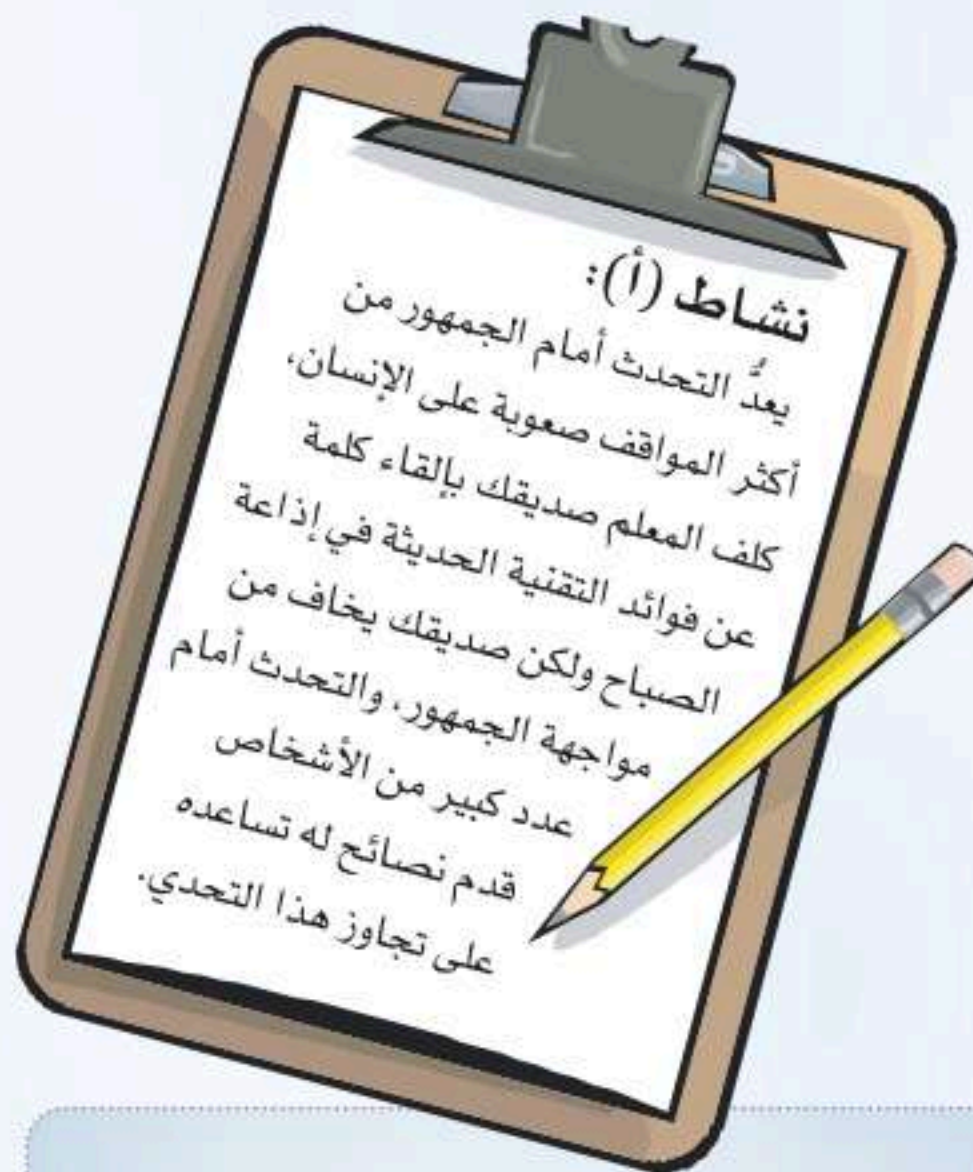 نشاط (أ):
يعدُّ التحدث أمام الجمهور من
أكثر المواقف صعوبة على الإنسان،
كلف المعلم صديقك بإلقاء كلمة
عن فوائد التقنية الحديثة في إذاعة
الصباح ولكن صديقك يخاف من
مواجهة الجمهور، والتحدث أمام
عدد كبير من الأشخاص
قدم نصائح له تساعده
على تجاوز هذا التحدي.